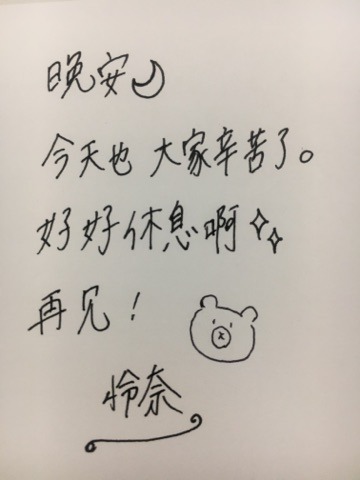 晚安
今天也 大家辛苦了。
好好休息啊
再见！
怜奈